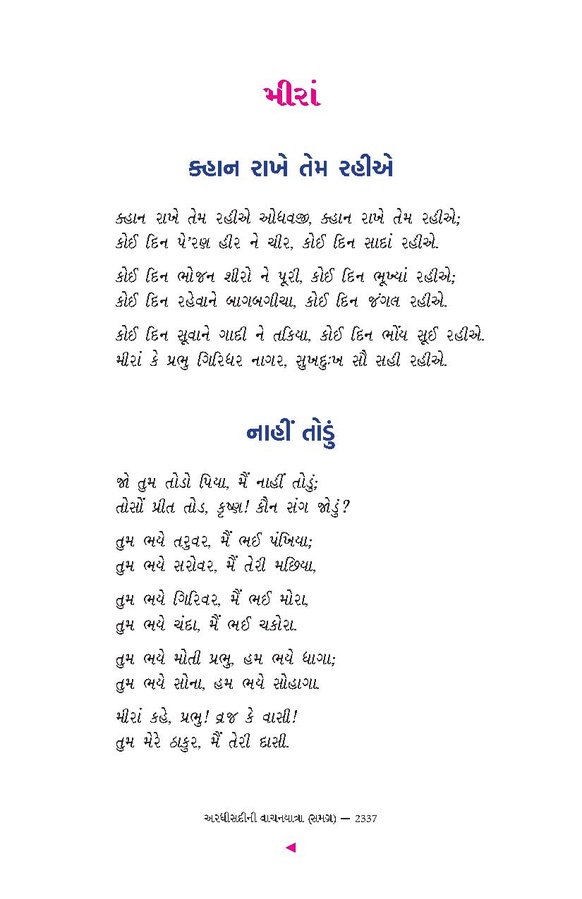 મીરાં
ક્હાન રાખે તેમ રહીએ
ક્હાન રાખે તેમ રહીએ ઓધવજી, ક્હાન રાખે તેમ રહીએ;
કોઈ દિન પે’રણ હીર ને ચીર, કોઈ દિન સાદાં રહીએ.
કોઈ દિન ભોજન શીરો ને પૂરી, કોઈ દિન ભૂખ્યાં રહીએ;
કોઈ દિન રહેવાને બાગબગીચા, કોઈ દિન જંગલ રહીએ.
કોઈ દિન સૂવાને ગાદી ને તકિયા, કોઈ દિન ભોંય સૂઈ રહીએ.
મીરાં કે પ્રભુ ગિરિધર નાગર, સુખદુઃખ સૌ સહી રહીએ.
નાહીં તોડું
જો તુમ તોડો પિયા, મૈં નાહીં તોડું;
તોસોં પ્રીત તોડ, કૃષ્ણ! કૌન સંગ જોડું?
તુમ ભયે તરુવર, મૈં ભઈ પંખિયા;
તુમ ભયે સરોવર, મૈં તેરી મછિયા,
તુમ ભયે ગિરિવર, મૈં ભઈ મોરા,
તુમ ભયે ચંદા, મૈં ભઈ ચકોરા.
તુમ ભયે મોતી પ્રભુ, હમ ભયે ધાગા;
તુમ ભયે સોના, હમ ભયે સોહાગા.
મીરાં કહે, પ્રભુ! વ્રજ કે વાસી!
તુમ મેરે ઠાકુર, મૈં તેરી દાસી.
અરધીસદીની વાચનયાત્રા (સમગ્ર) — 2337